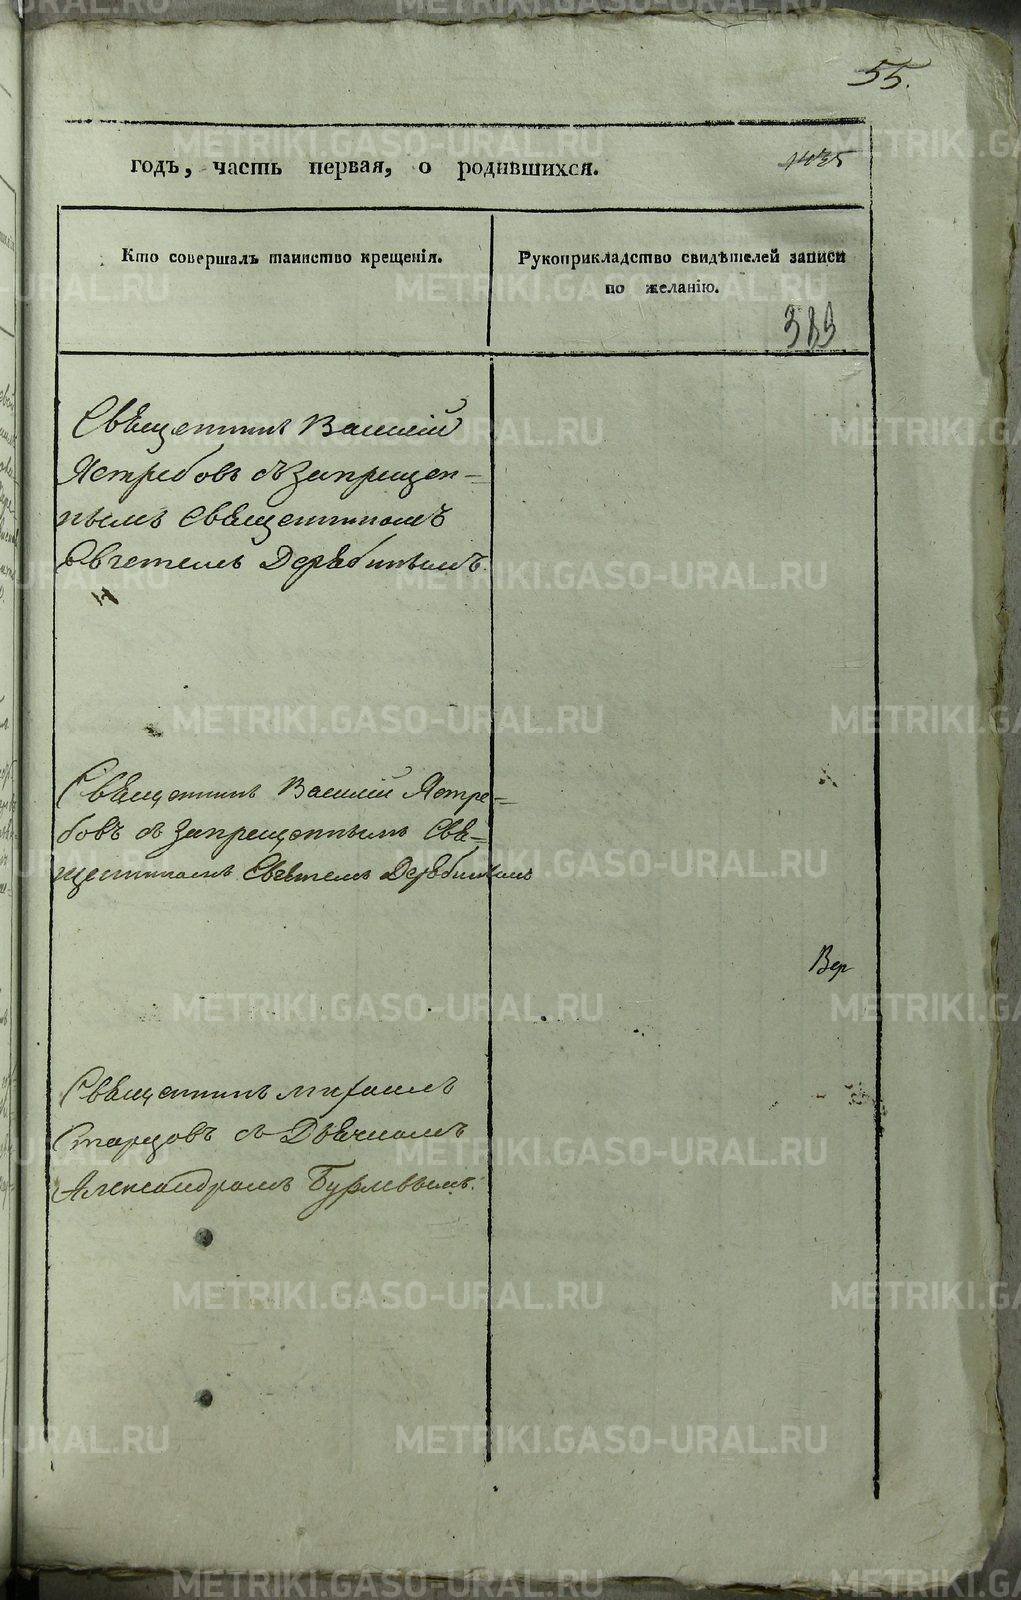 55.
годъ, часть первая, о родившихся.
Кто совершалъ таинство крещенія.
Рукоприкладство свидѣтелей записи
по желанію.
Священникъ Василій
Ястребовъ съ Запрещен-
нымъ Священникомъ
Евгеніемъ Дерябинымъ
Священникъ Василій Ястре=
бовъ съ Запрещеннымъ Свя=
щенникомъ Евгеніемъ Дерябинымъ
Вер
Священникъ Михаилъ
Старцовъ съ Дьячкомъ
Александромъ
METRIKI.GASO-URAL.RU